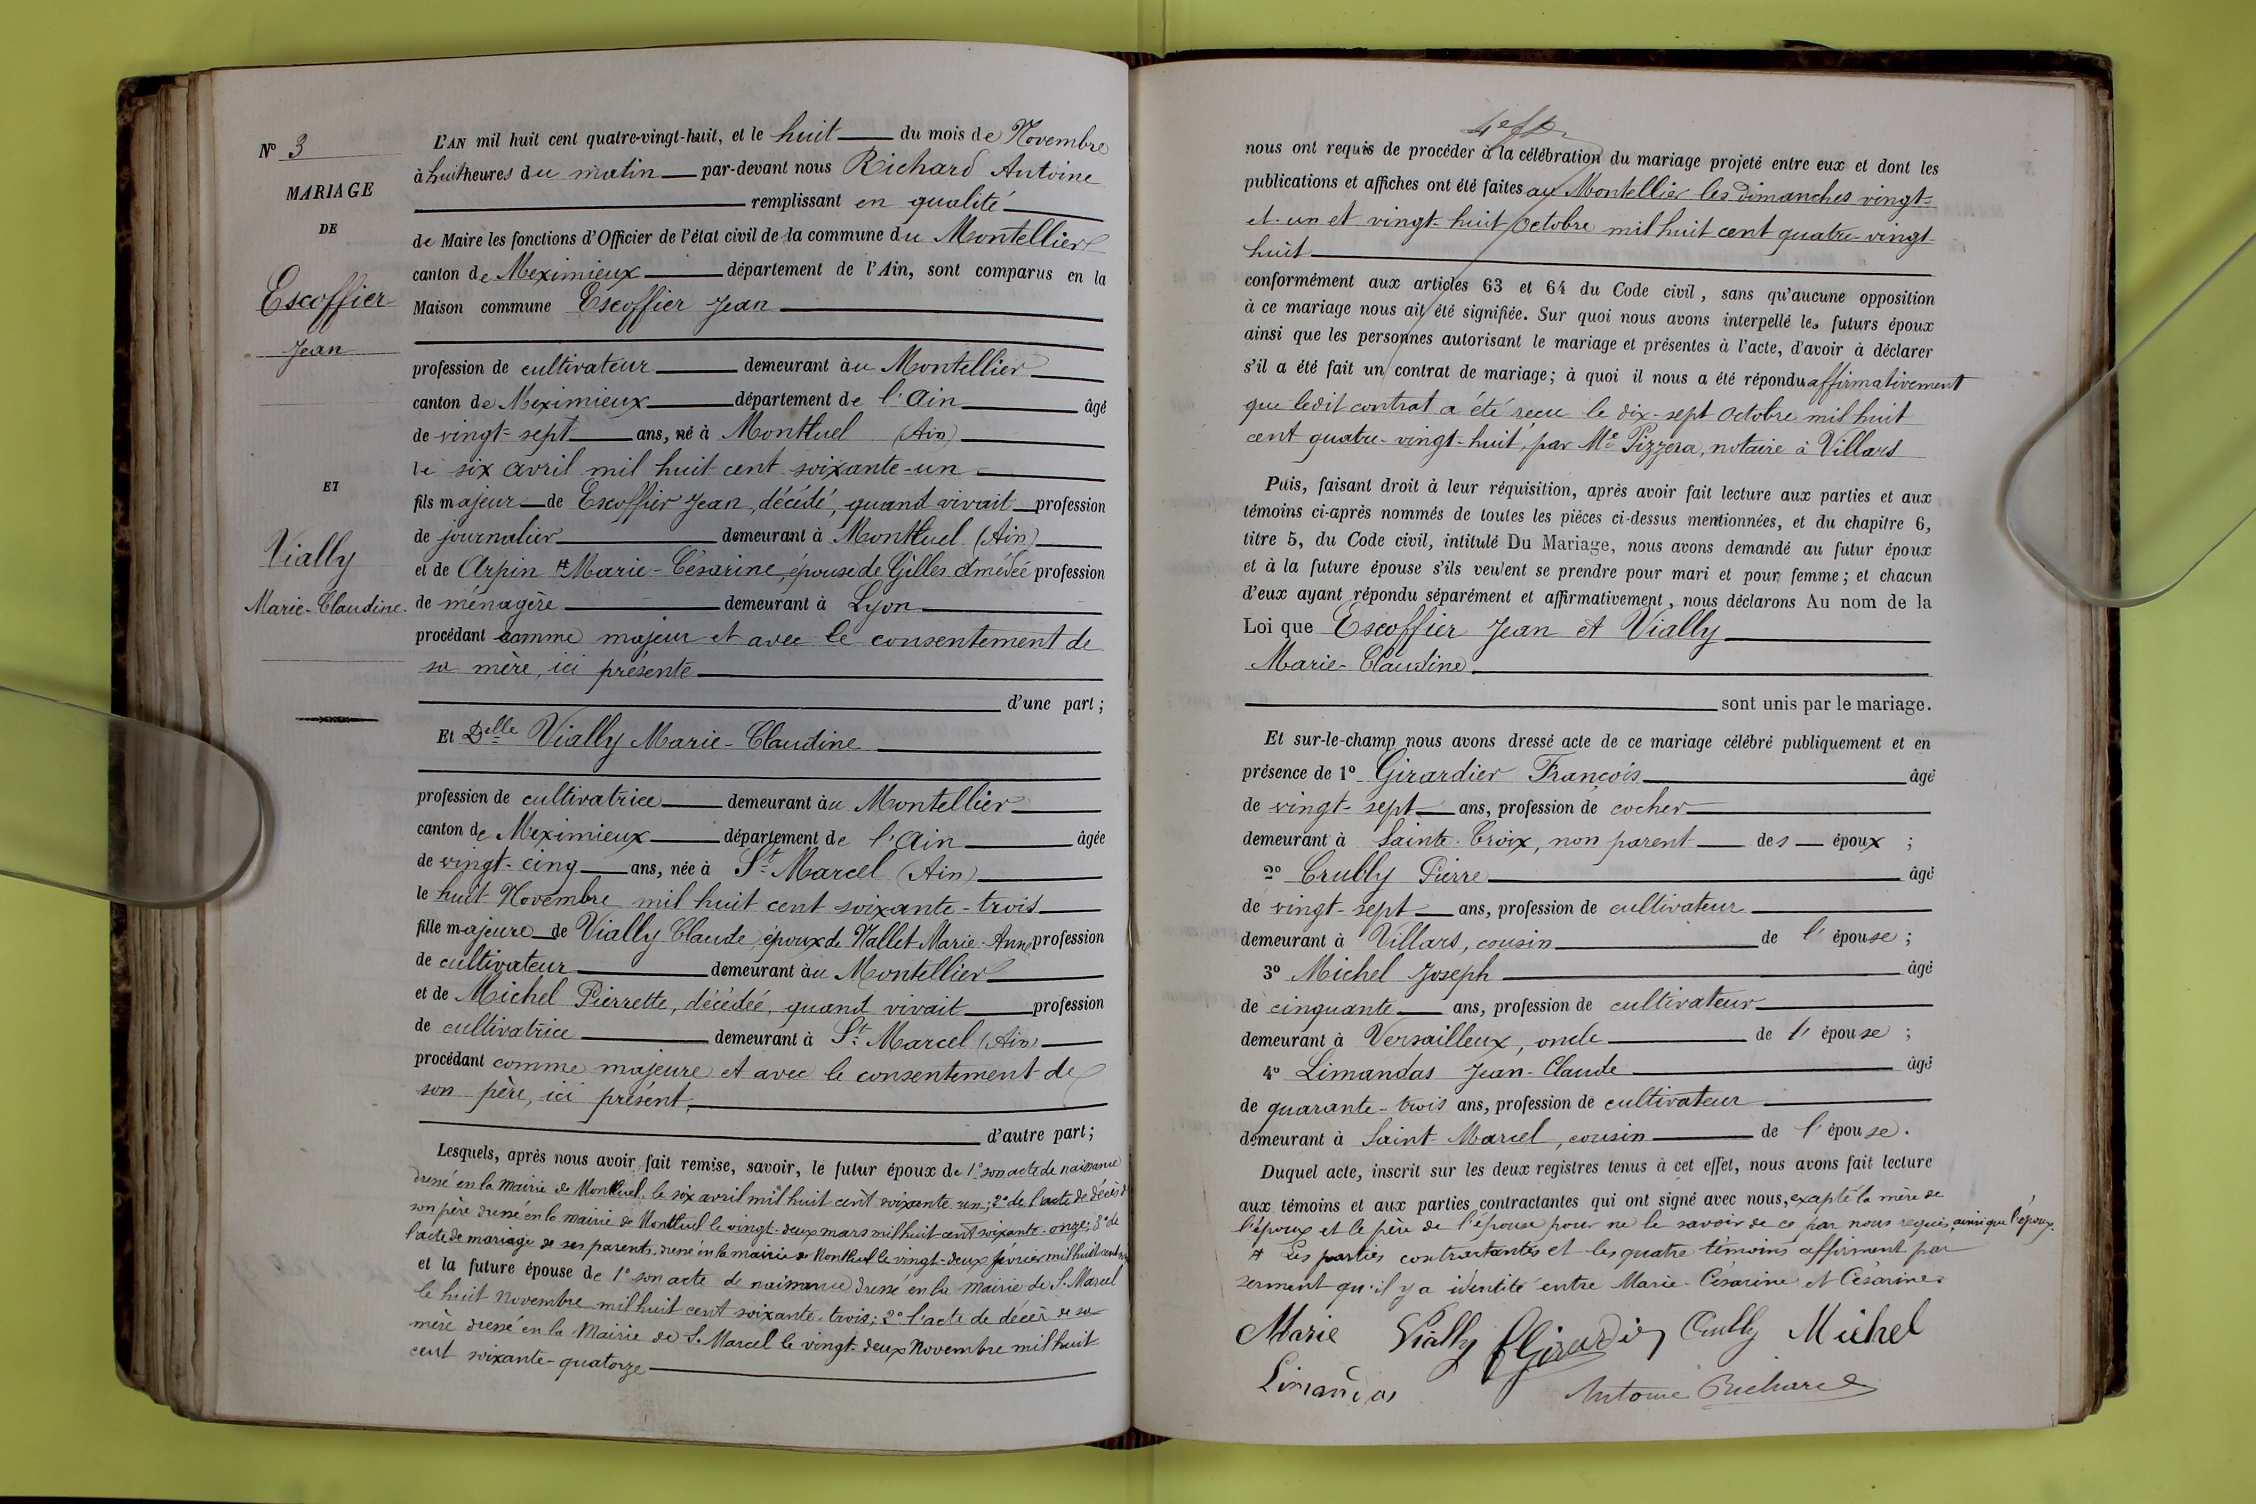 N° 3
MARIAGE
DE
Escoffier
Jean
ET
Vially
Marie-Claudine.
L'AN mil huit cent quatre-vingt-huit, et le huit du mois de Novembre
à huit heures du matin par-devant nous Richard Antoine
remplissant en qualité
de Maire les fonctions d'Officier de l'état civil de la commune du Montellier
canton de Meximieux département de l'Ain, sont comparus en la
Maison commune Escoffier Jean
profession de cultivateur demeurant au Montellier
canton de Meximieux département de l'Ain âgé
de vingt-sept ans, né à Montluel (Ain)
le six avril mil huit cent soixante-un
fils majeur de Escoffier Jean, décédé, quand vivait profession
de journalier demeurant à Montluel (Ain)
et de Arpin # Marie-Césarine, épouse de Gilles Amédée profession
de ménagère demeurant à Lyon
procédant comme majeur et avec le consentement de
sa mère, ici présente
d'une part;
Et Delle Vially Marie-Claudine
profession de cultivatrice demeurant au Montellier
canton de Meximieux département de l'Ain âgée
de vingt-cinq ans, née à St Marcel (Ain)
le huit Novembre mil huit cent soixante-trois
fille majeure de Vially Claude, époux de Nallet Marie-Anne profession
de cultivateur demeurant au Montellier
et de Michel Pierrette, décédée, quand vivait profession
de cultivatrice demeurant à St Marcel (Ain)
procédant comme majeure et avec le consentement de
son père, ici présent,
d'autre part;
Lesquels, après nous avoir fait remise, savoir, le futur époux de 1° son acte de naissance
dressé en la mairie de Montluel, le six avril mil huit cent soixante un; 2° de l'acte de décès de
son père dressé en la mairie de Montluel le vingt-deux mars mil huit cent soixante-onze; 3° de
l'acte de mariage de ses parents, dressé en la mairie de Montluel le vingt-deux février mil huit cent
et la future épouse de 1° son acte de naissance dressé en la mairie de St Marcel
le huit Novembre mil huit cent soixante-trois; 2° l'acte de décès de sa
mère dressé en la Mairie de St Marcel le vingt-deux Novembre mil huit
cent soixante-quatorze
nous ont requis de procéder à la célébration du mariage projeté entre eux et dont les
publications et affiches ont été faites au Montellier les dimanches vingt-
et-un et vingt-huit Octobre mil huit cent quatre-vingt-
huit
conformément aux articles 63 et 64 du Code civil, sans qu'aucune opposition
à ce mariage nous ait été signifiée. Sur quoi nous avons interpellé les futurs époux
ainsi que les personnes autorisant le mariage et présentes à l'acte, d'avoir à déclarer
s'il a été fait un contrat de mariage; à quoi il nous a été répondu affirmativement
que ledit contrat a été reçu le dix-sept Octobre mil huit
cent quatre-vingt-huit, par Me Pizzera, notaire à Villars
Puis, faisant droit à leur réquisition, après avoir fait lecture aux parties et aux
témoins ci-après nommés de toutes les pièces ci-dessus mentionnées, et du chapitre 6,
titre 5, du Code civil, intitulé Du Mariage, nous avons demandé au futur époux
et à la future épouse s'ils veulent se prendre pour mari et pour femme; et chacun
d'eux ayant répondu séparément et affirmativement, nous déclarons Au nom de la
Loi que Escoffier Jean et Vially
Marie-Claudine
sont unis par le mariage.
Et sur-le-champ nous avons dressé acte de ce mariage célébré publiquement et en
présence de 1° Girardier François âgé
de vingt-sept ans, profession de cocher
demeurant à Sainte-Croix, non parent des époux ;
2° Crubly Pierre âgé
de vingt-sept ans, profession de cultivateur
demeurant à Villars, cousin de l'épouse ;
3° Michel Joseph âgé
de cinquante ans, profession de cultivateur
demeurant à Versailleux, oncle de l'épouse ;
4° Limandas Jean-Claude âgé
de quarante-trois ans, profession de cultivateur
demeurant à Saint-Marcel, cousin de l'épouse.
Duquel acte, inscrit sur les deux registres tenus à cet effet, nous avons fait lecture
aux témoins et aux parties contractantes qui ont signé avec nous, excepté la mère de
l'époux et le père de l'épouse pour ne le savoir de ce par nous requis, ainsi que l'époux.
# Les parties contractantes et les quatre témoins affirment par
serment qu'il y a identité entre Marie-Césarine et Césarine.
Marie Vially fGirardier Crubly Michel
Limandas Antoine Richard